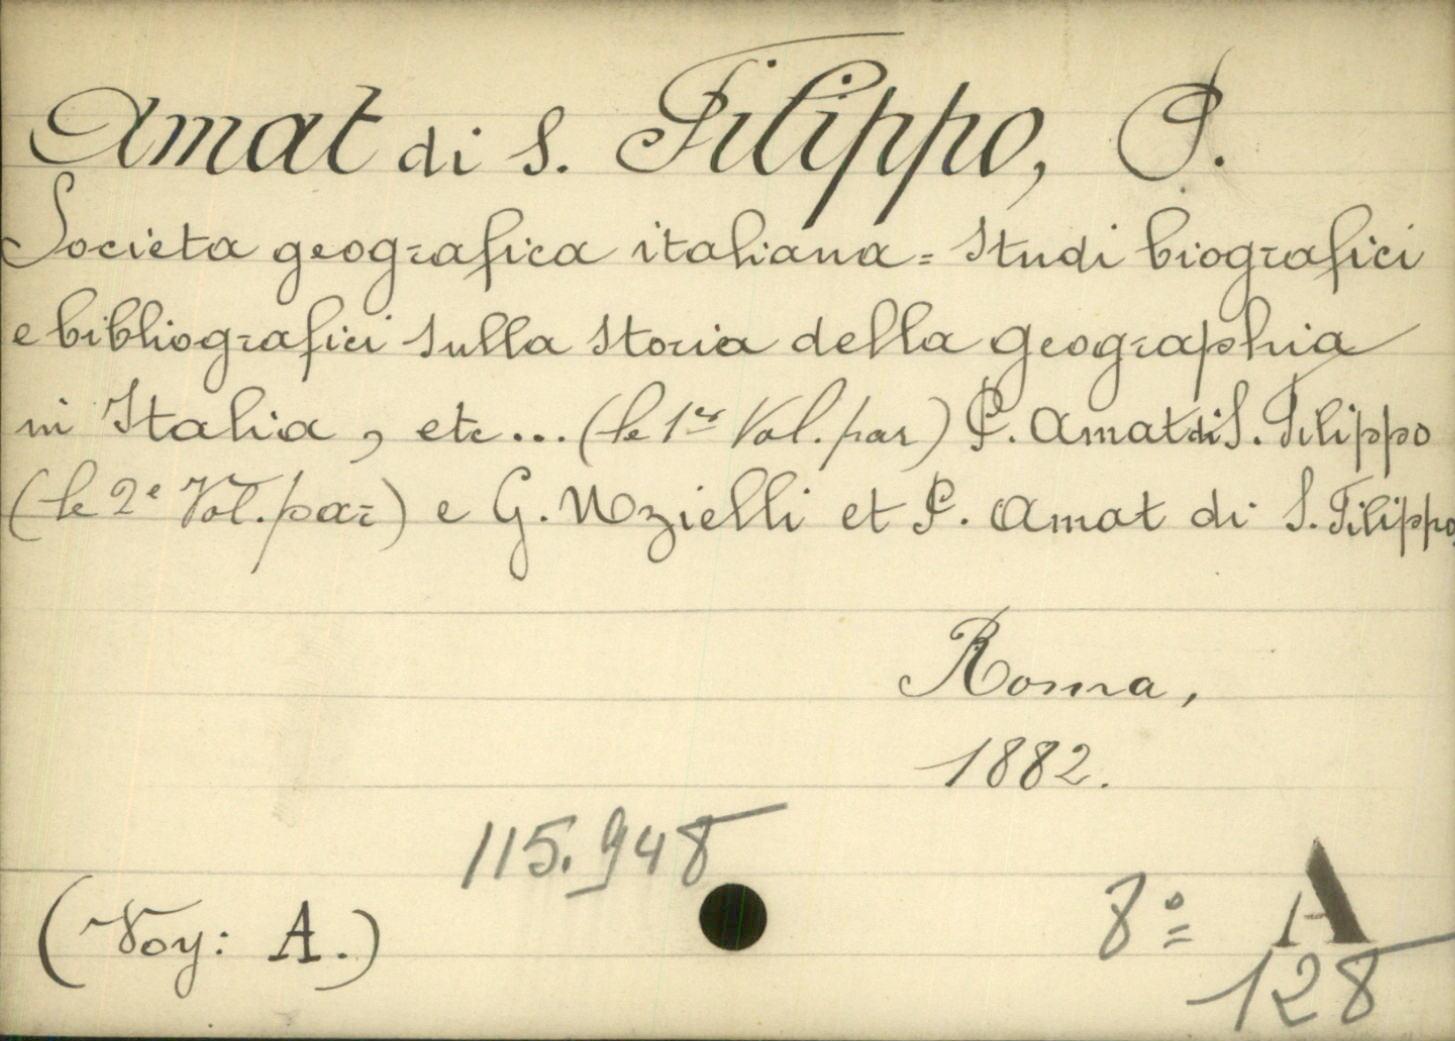 Amat di S. Filippo, P.
Societa geografica italiana = Studi biografici
e bibliografici sulla storia della geographia
in Italia, etc... (le 1er Vol. par) P. Amat di S. Filippo
(le 2e Vol. par) e G. Uzielli et P. Amat di S. Filippo,
Roma,
1882.
115.948
(Voy: A.)
8º A
128